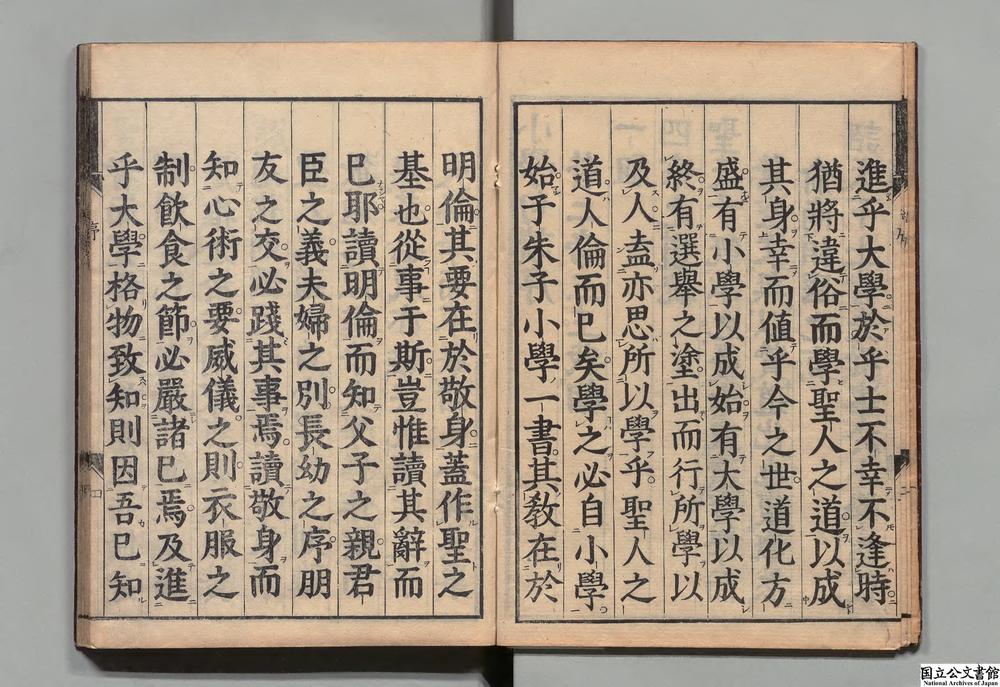 進乎大學於乎士不幸不逢時
猶將違俗而學聖人之道以成
其身幸而值乎今之世道化方
盛有小學以成始有大學以成
終有選舉之塗出而行所學以
及人盍亦思所以學乎聖人之
道人倫而已矣學之必自小學
始子朱子小學一書其敎在於
明倫其要在於敬身蓋作聖之
基也從事于斯豈惟讀其辭而
已耶讀明倫而知父子之親君
臣之義夫婦之別長幼之序朋
友之交必踐其事焉讀敬身而
知心術之要威儀之則衣服之
制飲食之節必嚴諸已焉及進
乎大學格物致知則因吾已知
序
四
国立公文書館
National Archives of Japan